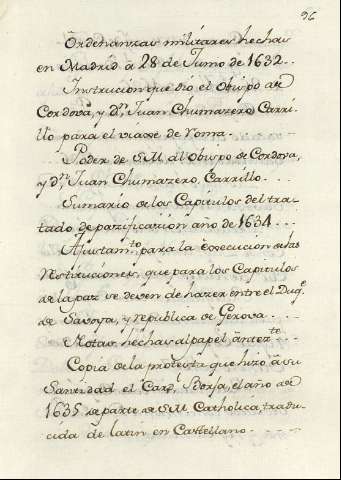 96
Ordenanzas militares hechas
en Madrid à 28 de Junio de 1632..
Instrucion que dio el Obispo de
Cordova, y dⁿ Juan Chumazero, Carri-
llo para el viaxe de Roma.
Poder de S.M. al Obispo de Cordova,
y dⁿ Juan Chumazero, Carrillo.
Sumario de los Capitulos del tra-
tado de pazificazion año de 1634...
Ajustamᵗᵒ para la execucion de las
restituciones, que para los Capitulos
de la paz se deven de hazer entre el Duqᵉ
de Savoya, y republica de Genova..
Notas hechas al papel antezᵗᵉ
Copia de la protesta que hizo à su
Santidad el Carˡ Borja, el año de
1635 de parte de S.M. Catholica, tradu-
cida de latin en Castellano.